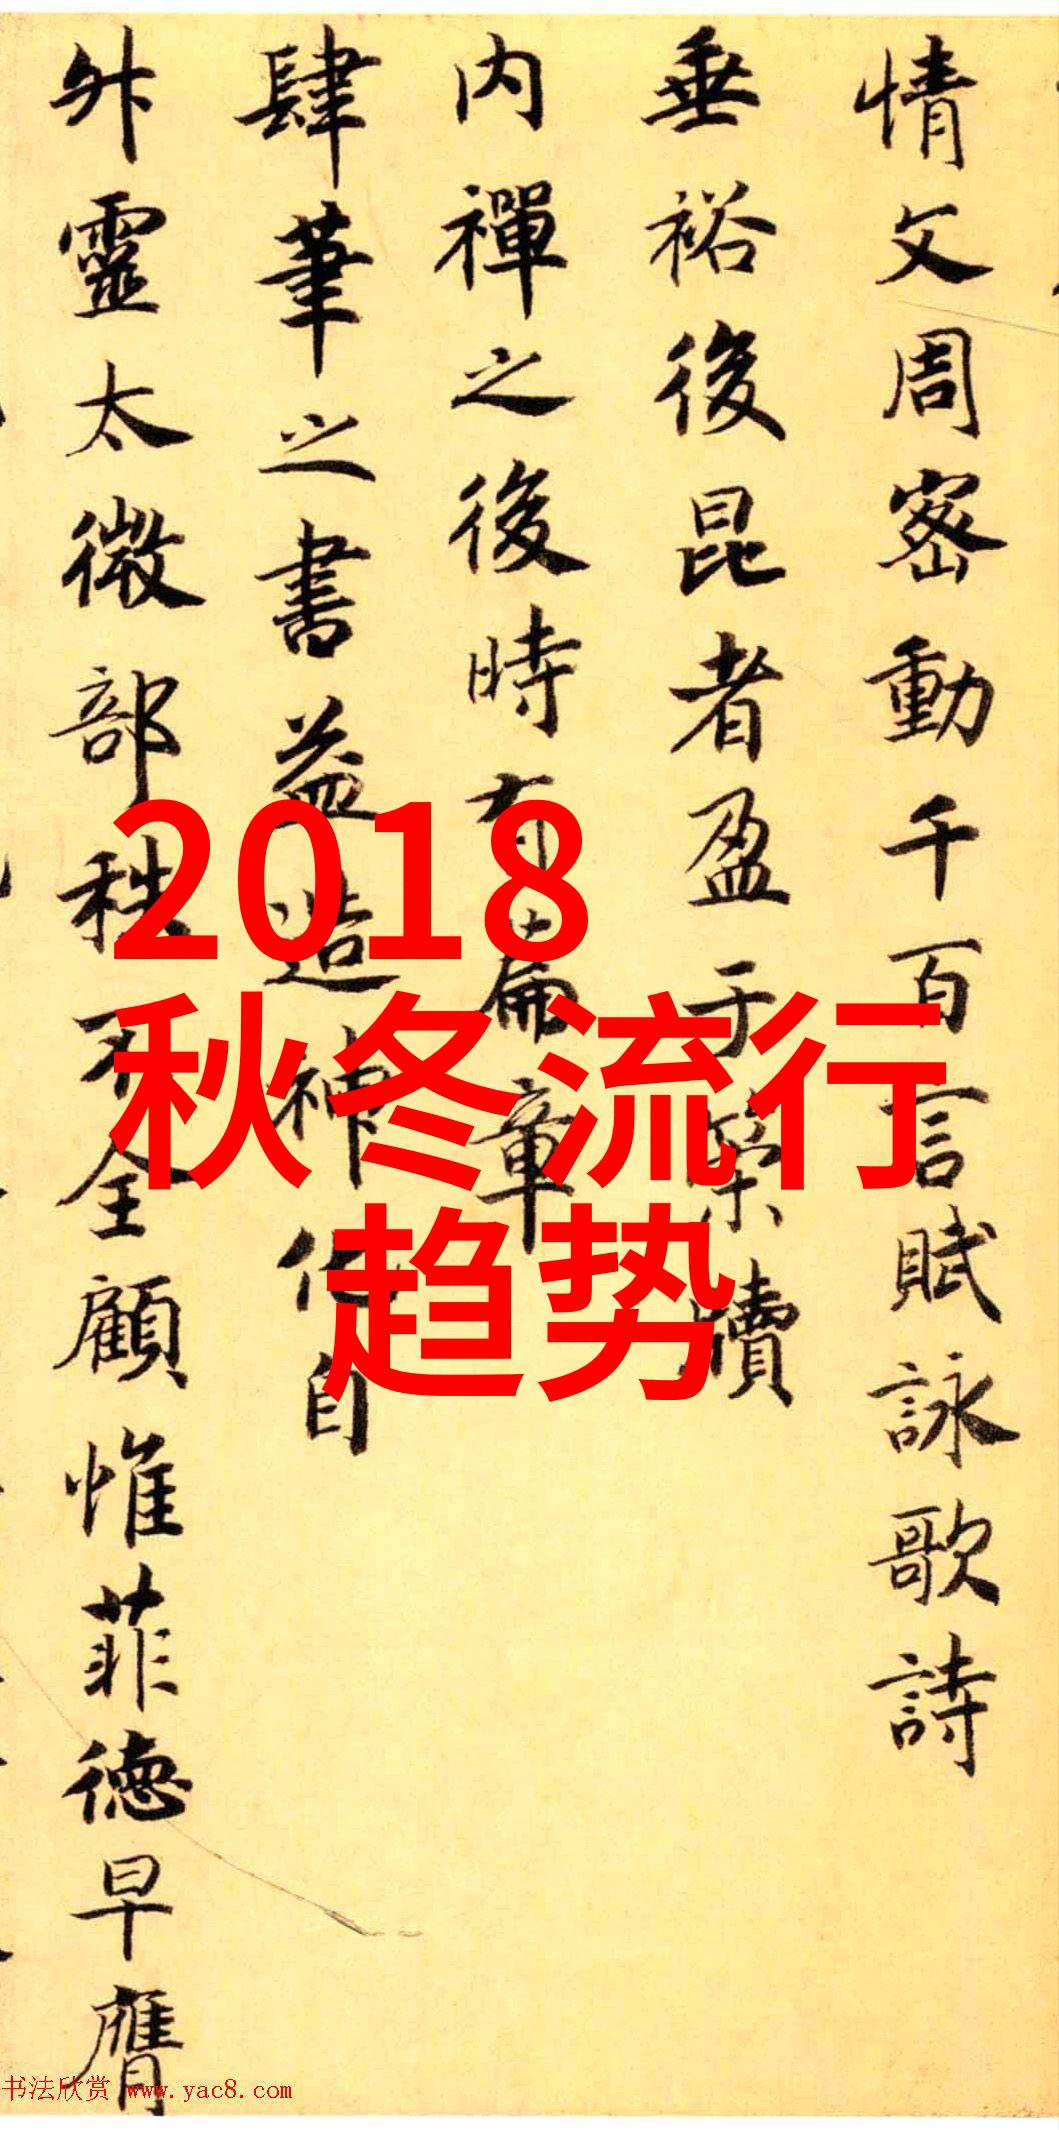 情文周密動千百言賦詠歌詩
垂裕後昆者盈于策牘
内禪之後時有篇章
肆筆之書益造神化自
外靈太微部秩不全顧惟菲德早膺
2018
秋冬流行
趋势
书法欣赏 www.yac8.com